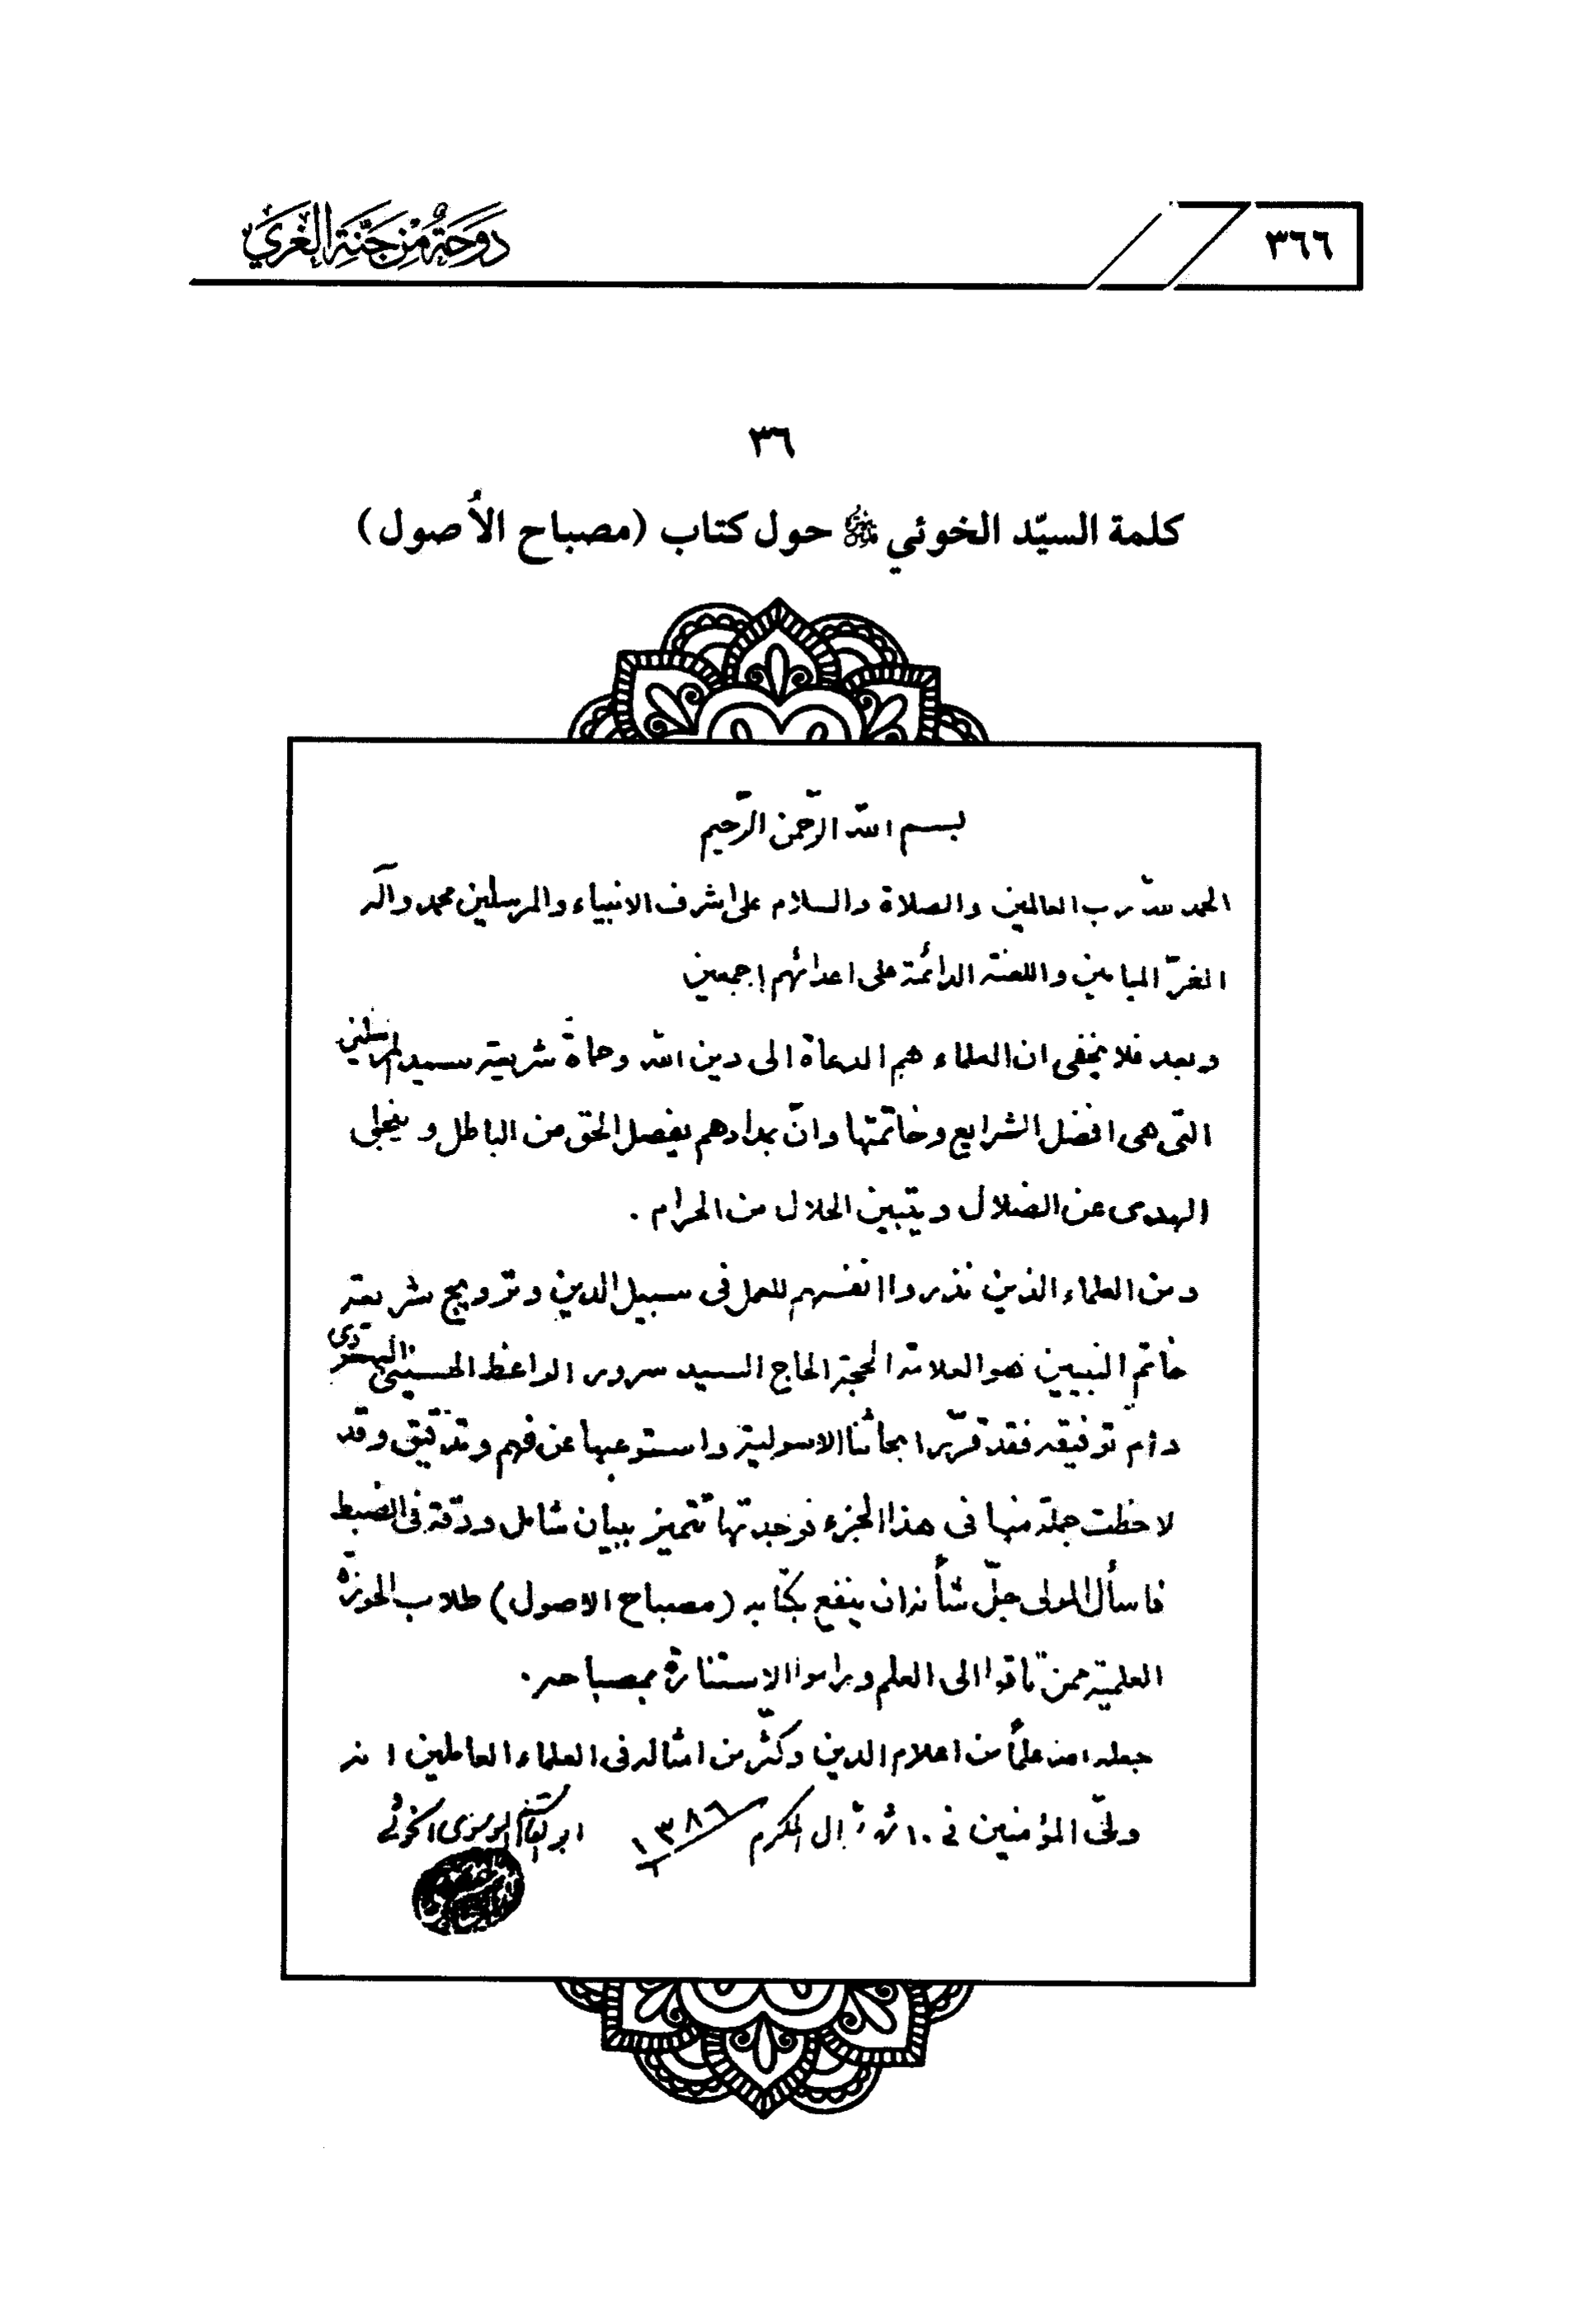 ٣٦٦
دَوحَةٌ مِن جَنَّةِ الغَريِّ
٣٦
كلمة السيّد الخوئي قدس سره حول كتاب (مصباح الأُصول)
بسم الله الرّحمن الرّحيم
الحمد للّه رب العالمين والصلاة والسلام على اشرف الانبياء والمرسلين محمد وآله
الغرّ الميامين واللعنة الدائمة على اعدائهم اجمعين
وبعد فلا يخفى ان العلماء هم الدعاة الى دين الله وحماة شريعة سيد المرسلين
التى هى افضل الشرايع وخاتمتها وانّ بمدادهم يفصل الحق من الباطل وينجلى
الهدى عن الضلال ويتبين الحلال من الحرام .
ومن العلماء الذين نذروا انفسهم للعمل فى سبيل الدين وترويج شريعة
خاتم النبيين هو العلامة الحجة الحاج السيد سرور الواعظ الحسينى البهسودى
دام توفيقه فقد قرّر ابحاثنا الاسولية واستوعبها عن فهم وتدقيق وقد
لاحظت جملة منها فى هذا الجزء فوجدتها تتميز ببيان شامل ودقة فى الضبط
فاسأل المولى جلّ شأنه ان ينفع بكتابه (مصباح الاصول) طلاب الحوزة
العلمية ممن تاقوا الى العلم وراموا الاستنارة بمصباحه .
جعله الله علماً من اعلام الدين وكثّر من امثاله فى العلماء العاملين انه
ولىّ المؤمنين فى ١٠ شوال المكرم ١٣٨٦ ابو القاسم الموسوى الخوئى